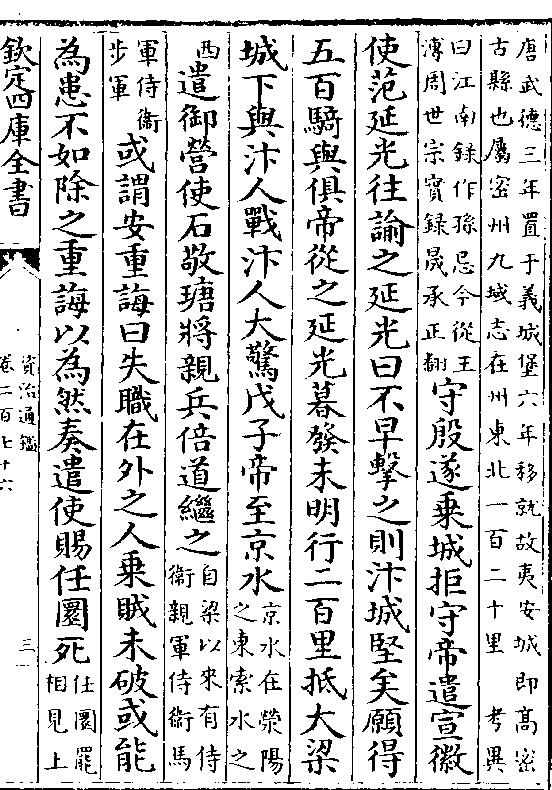 唐武德三年置于義城堡六年移就故夷安城即髙宻
古縣也屬宻州九域志在州東北一百二十里　考異
曰江南錄作孫忌今從王
溥周世宗實録晟承正翻
守殷遂乗城拒守帝遣宣徽
使范延光往諭之延光曰不早擊之則汴城堅矣願得
五百騎與俱帝從之延光暮發未明行二百里抵大梁
城下與汴人戰汴人大驚戊子帝至京水
京水在滎陽
之東索水之
西
遣御營使石敬瑭將親兵倍道繼之
自梁以來有侍
衞親軍侍衞馬
軍侍衞
步軍
或謂安重誨曰失職在外之人乗賊未破或能
為患不如除之重誨以為然奏遣使賜任圜死
任圜罷
相見上
欽定四庫全書
資治通鑑
卷二百七十六
三